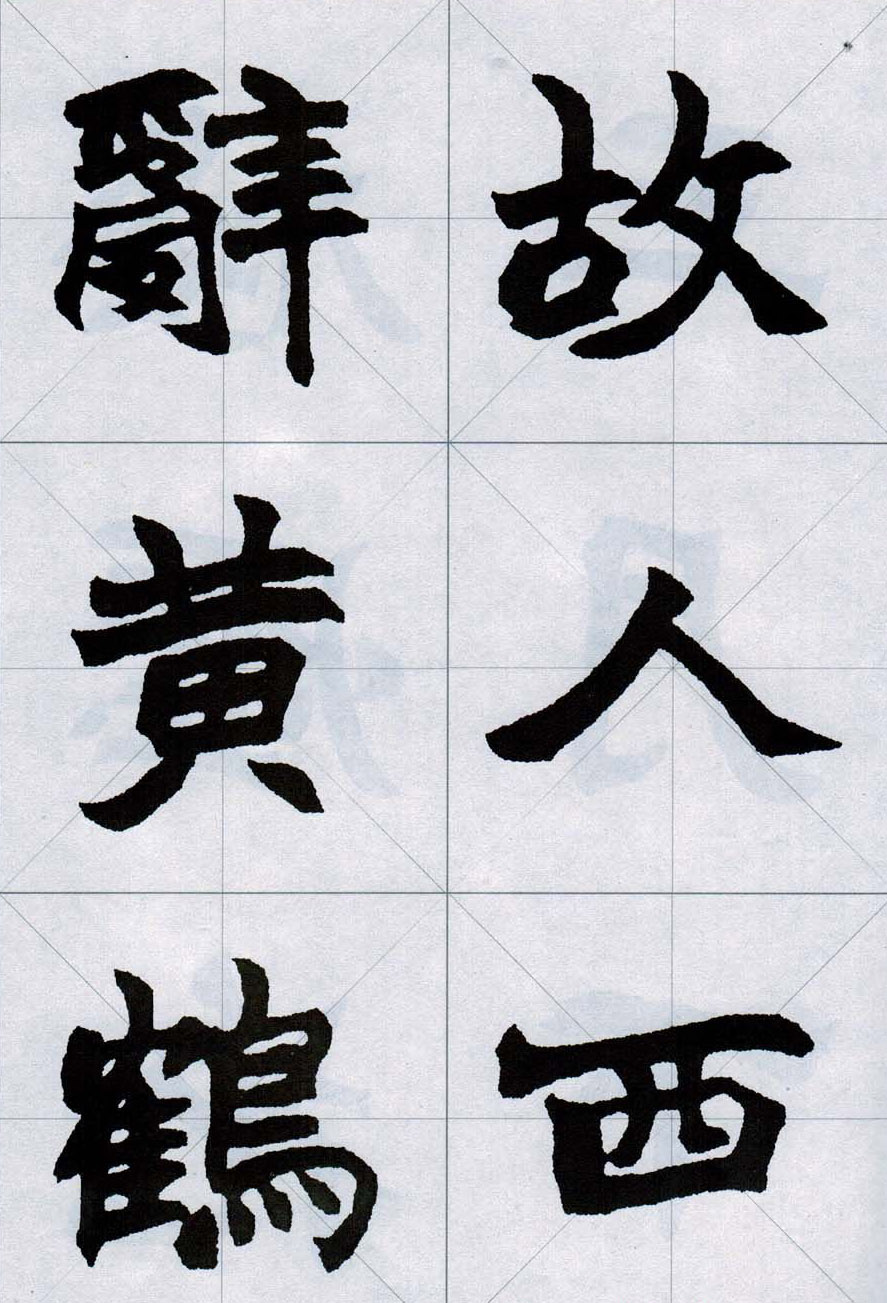 故人西
辭黄鶴